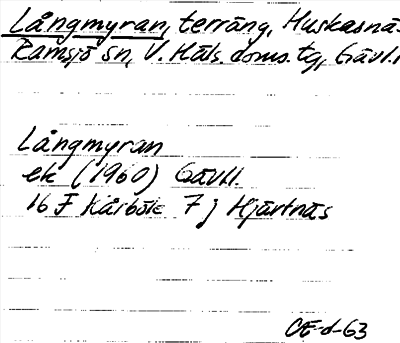 Långmyran, terräng, Huskasnäs
Ramsjö sn, V. Häls. doms. tg, Gävl.
Långmyran
ek (1960) Gävll.
16 F Kårböle 7 j Hjärtnäs
CE-d-63